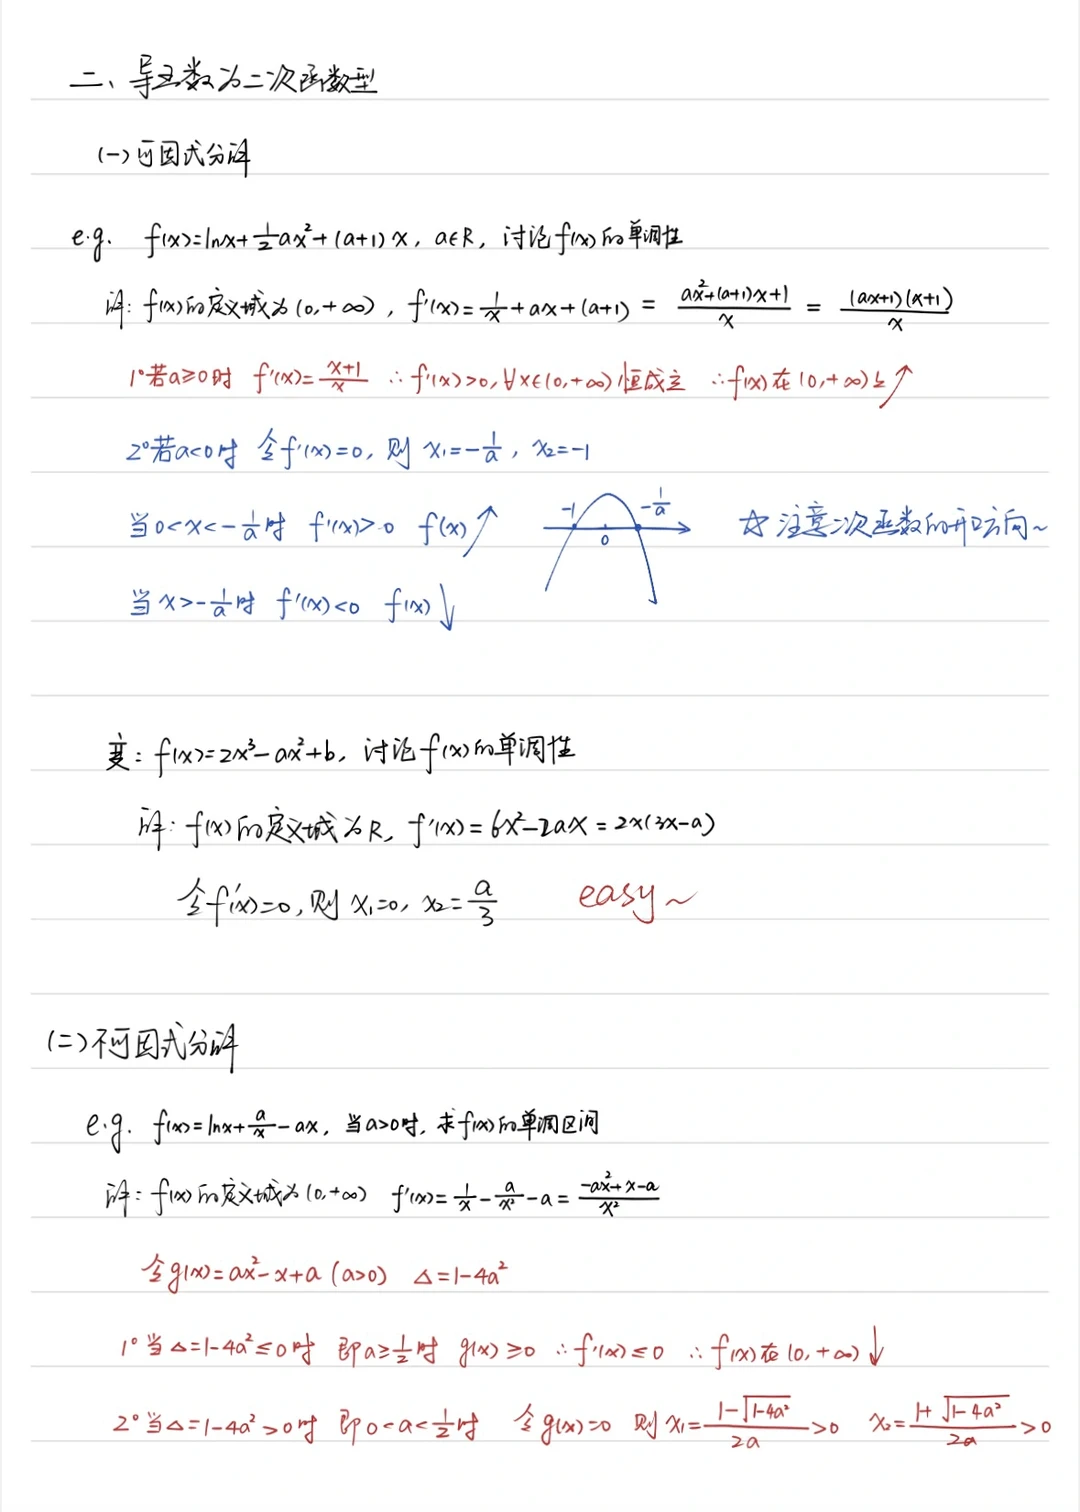 二、导函数为二次函数型
(一)可因式分解
e.g. f(x)=lnx+½ax²+(a+1)x, a∈R, 讨论f(x)的单调性
解: f(x)的定义域为(0,+∞), f'(x)=1/x+ax+(a+1) = (ax²+(a+1)x+1)/x = ((ax+1)(x+1))/x
1°若a≥0时 f'(x)=(x+1)/x ∴f'(x)>0,∀x∈(0,+∞)恒成立 ∴f(x)在(0,+∞)上↗
2°若a<0时 令f'(x)=0, 则 x₁=-1/a, x₂=-1
当0<x<-1/a时 f'(x)>0 f(x)↗ -1 0 -1/a ☆注意二次函数的开口方向~
当x>-1/a时 f'(x)<0 f(x)↓
变: f(x)=2x³-ax²+b, 讨论f(x)的单调性
解: f(x)的定义域为R, f'(x)=6x²-2ax=2x(3x-a)
令f'(x)=0, 则 x₁=0, x₂=a/3 easy~
(二)不可因式分解
e.g. f(x)=lnx+a/x-ax, 当a>0时, 求f(x)的单调区间
解: f(x)的定义域为(0,+∞) f'(x)=1/x-a/x²-a=(-ax²+x-a)/x²
令g(x)=ax²-x+a (a>0) △=1-4a²
1°当△=1-4a²≤0时 即a≥½时 g(x)≥0 ∴f'(x)≤0 ∴f(x)在(0,+∞)↓
2°当△=1-4a²>0时 即0<a<½时 令g(x)=0 则x₁=(1-√(1-4a²))/2a>0 x₂=(1+√(1-4a²))/2a>0